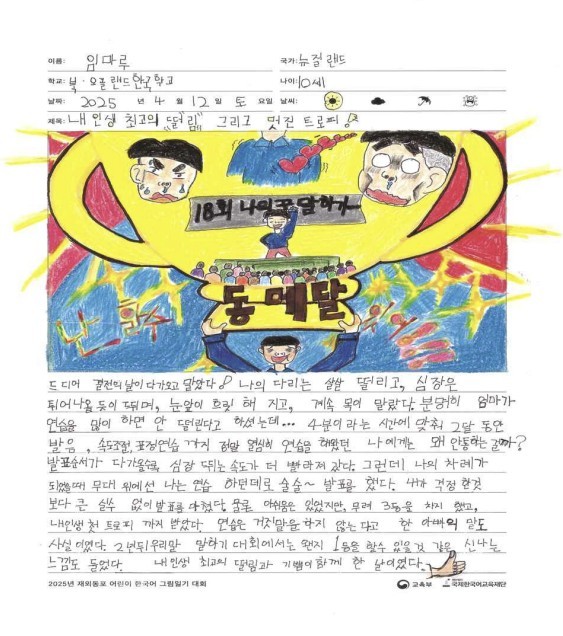 이름: 임마루
국가: 뉴질랜드
학교: 북·오클랜드한국학교
나이: 10세
날짜: 2025 년 4 월 12 일 토 요일 날씨:
제목: 내 인생 최고의 "떨림" 그리고 멋진 트로피!
18회 나의꿈말하기
동메달
드디어 결전의 날이 다가오고 말았다! 나의 다리는 살살 떨리고, 심장은
튀어나올 듯이 뛰며, 눈앞이 흐릿 해 지고, 계속 목이 말랐다. 분명히 엄마가
연습을 많이 하면 안 떨린다고 하셨는데... 4분이라는 시간에 맞춰 2달 동안
발음, 속도조절, 표정연습 까지 정말 열심히 연습을 해왔던 나에게는 왜 안통하는 걸까?
발표순서가 다가올수록, 심장 뛰는 속도가 더 빨라져 갔다. 그런데 나의 차례가
되었을때 무대 위에선 나는 연습 하던데로 술술~ 발표를 했다. 내가 걱정 한것
보다 큰 실수 없이 발표를 마쳤다. 물론 아쉬움은 있었지만, 무려 3등을 차지 했고,
내인생 첫 트로피 까지 받았다. 연습은 거짓말을 하지 않는 다고 한 아빠의 말도
사실 이였다. 2년뒤 우리말 말하기 대회에서는 왠지 1등을 할수 있을것 같은 신나는
느낌도 들었다. 내 인생 최고의 떨림과 기쁨이 함께 한 날이였다.
2025년 재외동포 어린이 한국어 그림일기 대회
교육부 국제한국어교육재단